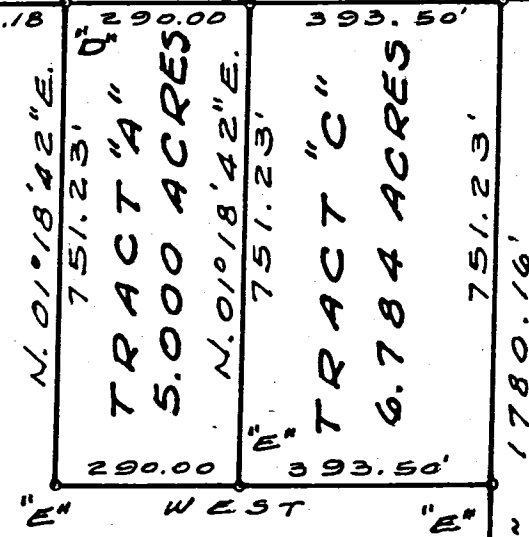 .18
290.00
393.50'
"D"
N. 01°18'42"E.
751.23'
TRACT "A"
5.000 ACRES
N. 01°18'42"E.
751.23'
TRACT "C"
6.784 ACRES
751.23'
1780.16'
"E"
290.00
393.50'
"E"
WEST
"E"